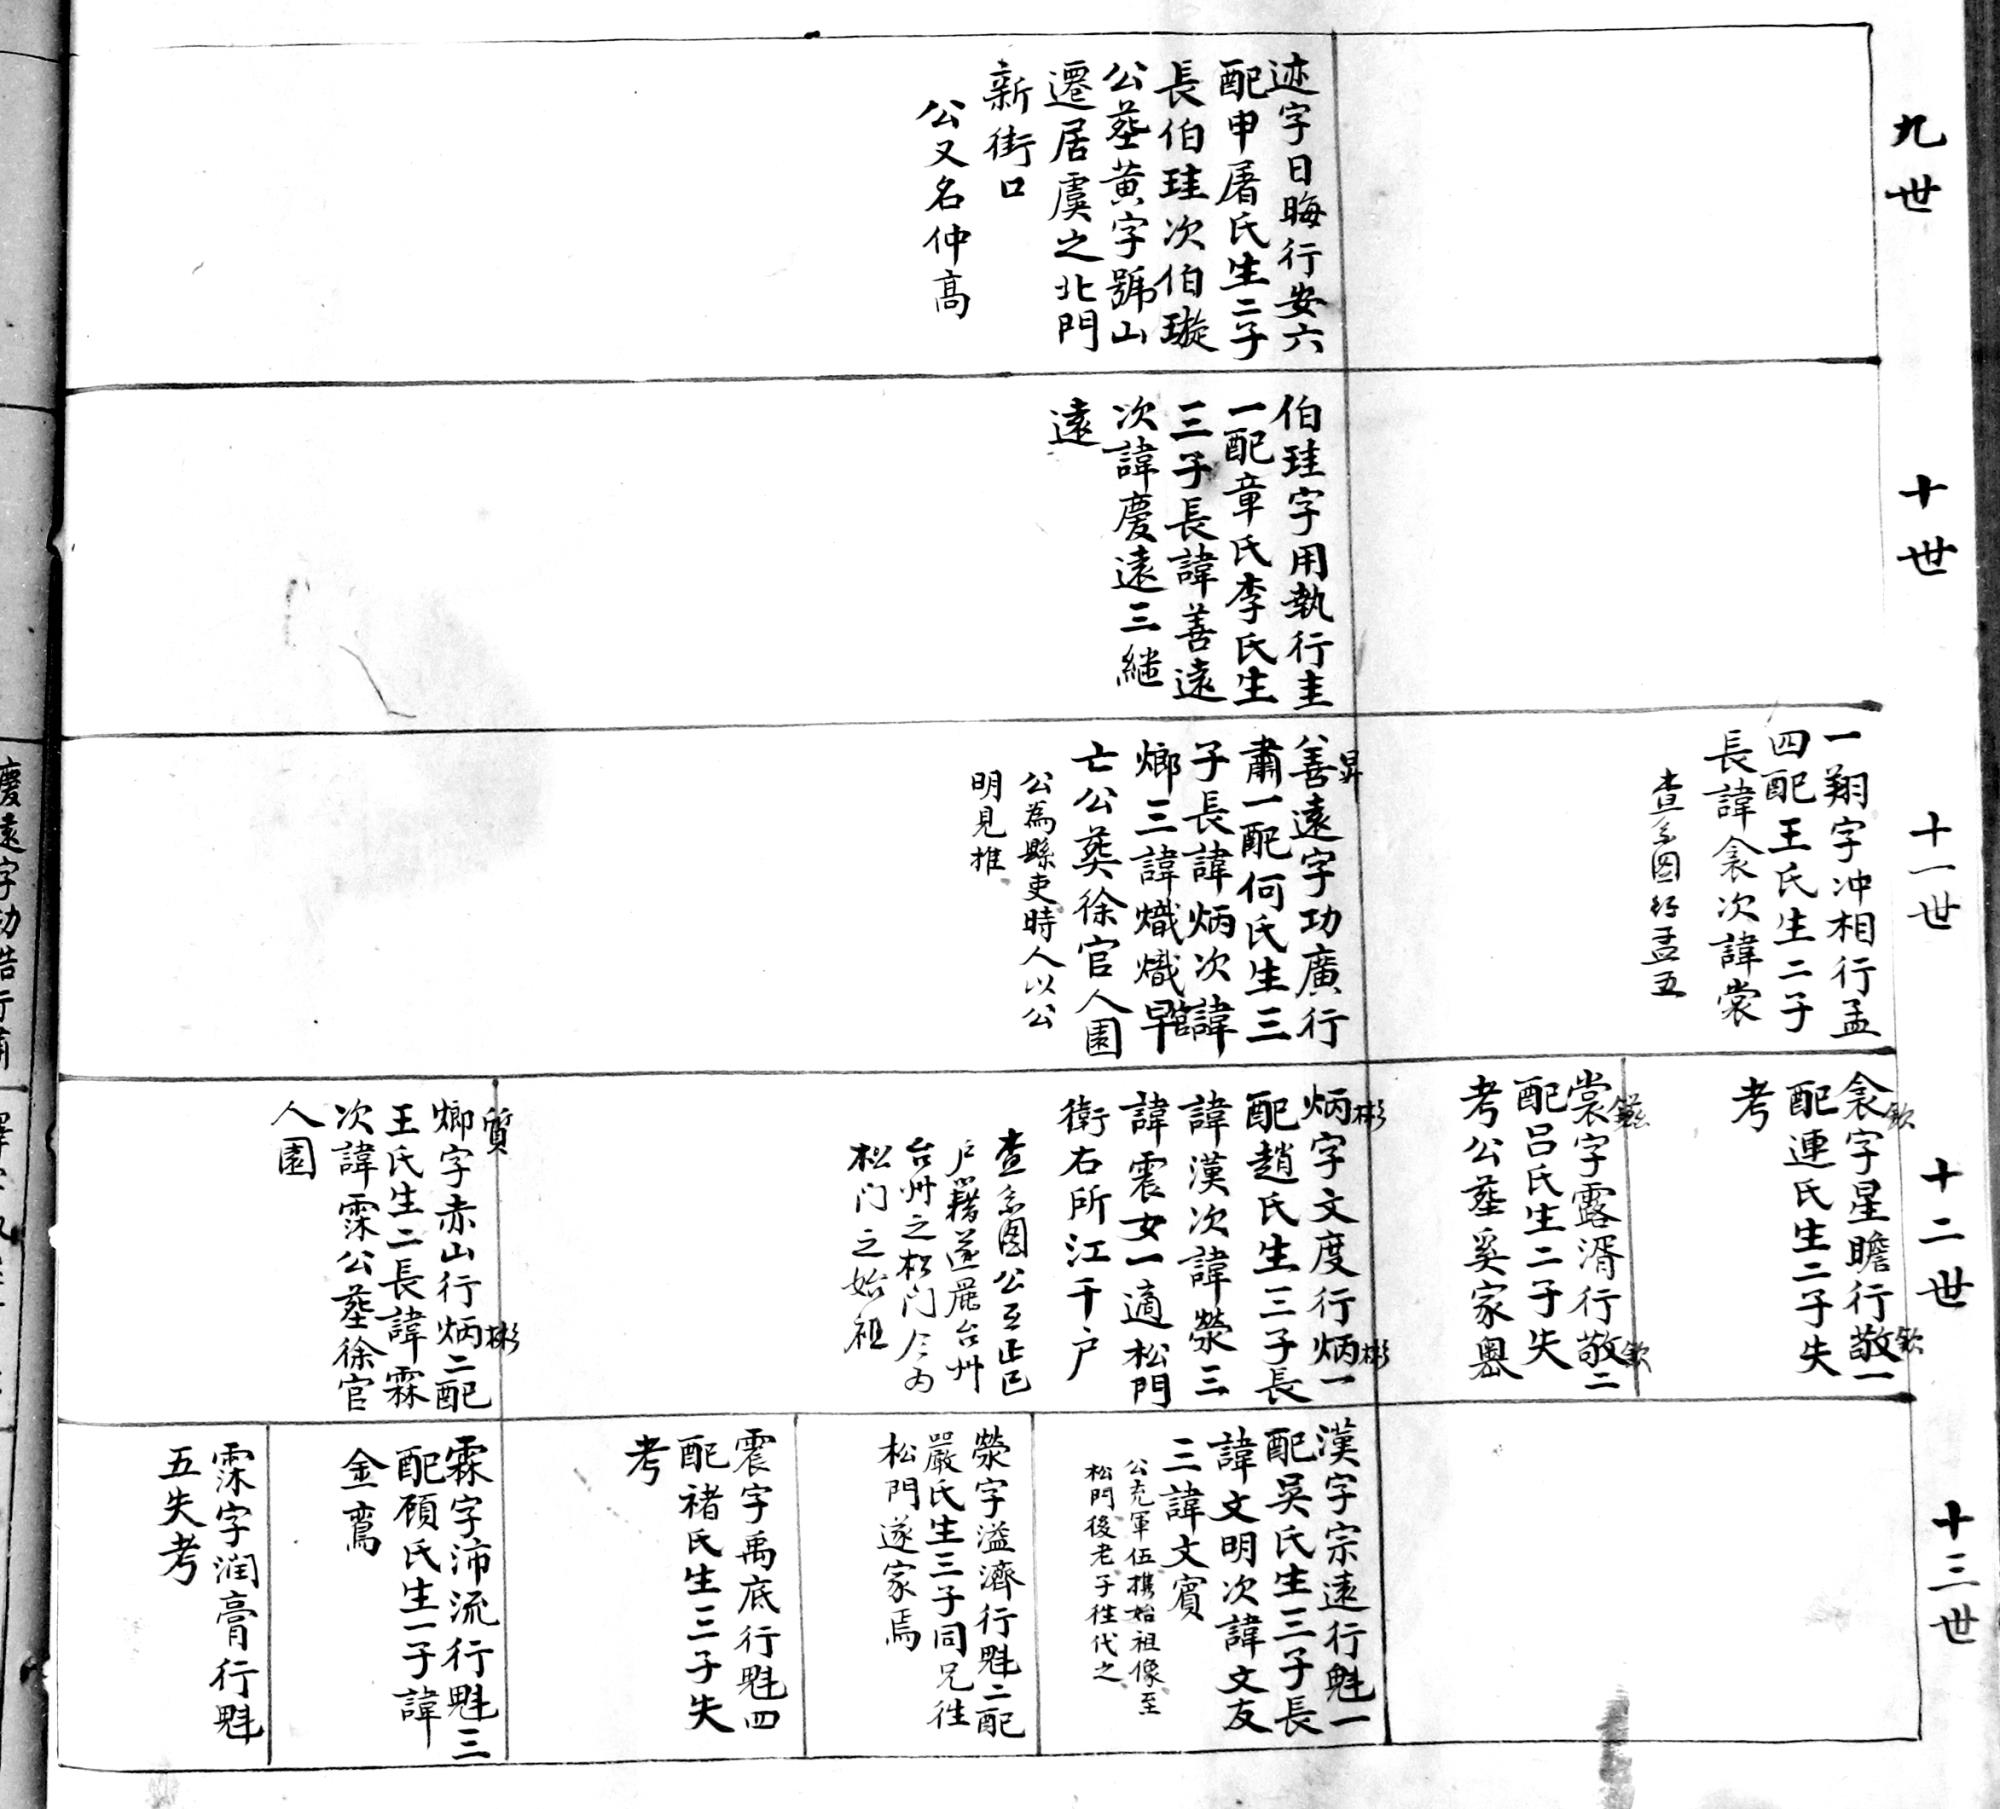 九世
迹字日晦行安六
配申屠氏生二子
長伯珪次伯璇
公塟黄字號山
遷居虞之北門
新街口
公又名仲高
十世
伯珪字用執行圭
一配章氏李氏生
三子長諱善遠
次諱慶遠三繼
遠
十一世
一翔字冲相行孟
四配王氏生二子
長諱衾次諱裳
查系圖行孟五
昇
善遠字功廣行
肅一配何氏生三
子長諱炳次諱
熾三諱熾熾早
亡公葬徐官人園
公為縣吏時人以公
明見推
十二世
衾字星瞻行敬一
欽
欽
配連氏生二子失
考
裳字露湑行敬二
欽
配吕氏生二子失
考公塟奚家嶴
炳字文度行炳一
彬
彬
配趙氏生三子長
諱漢次諱滎三
諱震女一適松門
衛右所江千户
查系圖公至正已
户籍遂罷台州
台州之松门今为
松门之始祖
質
字赤山行炳二配
彬
王氏生二長諱霖
次諱霂公塟徐官
人園
十三世
漢字宗遠行魁一
配吴氏生三子長
諱文明次諱文友
三諱文賓
公充軍伍携始祖像至
松門後老子往代之
滎字溢濟行魁二配
嚴氏生三子同兄往
松門遂家焉
震字禹底行魁四
配褚氏生二子失
考
霖字沛流行魁三
配顧氏生一子諱
金鸞
霂字润膏行魁
五失考
慶遠字功浩行肅